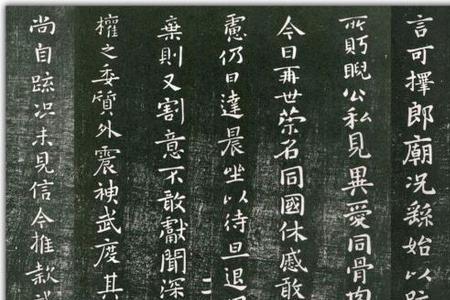 言可擇郎廟況繇始以
所眄睨公私見異愛同骨肉
今日再世榮名同國休慼敢
慮仍日達晨坐以待旦退
棄則又割意不敢獻聞深
權之委質外震神武度其
尚自疏況未見信今推款